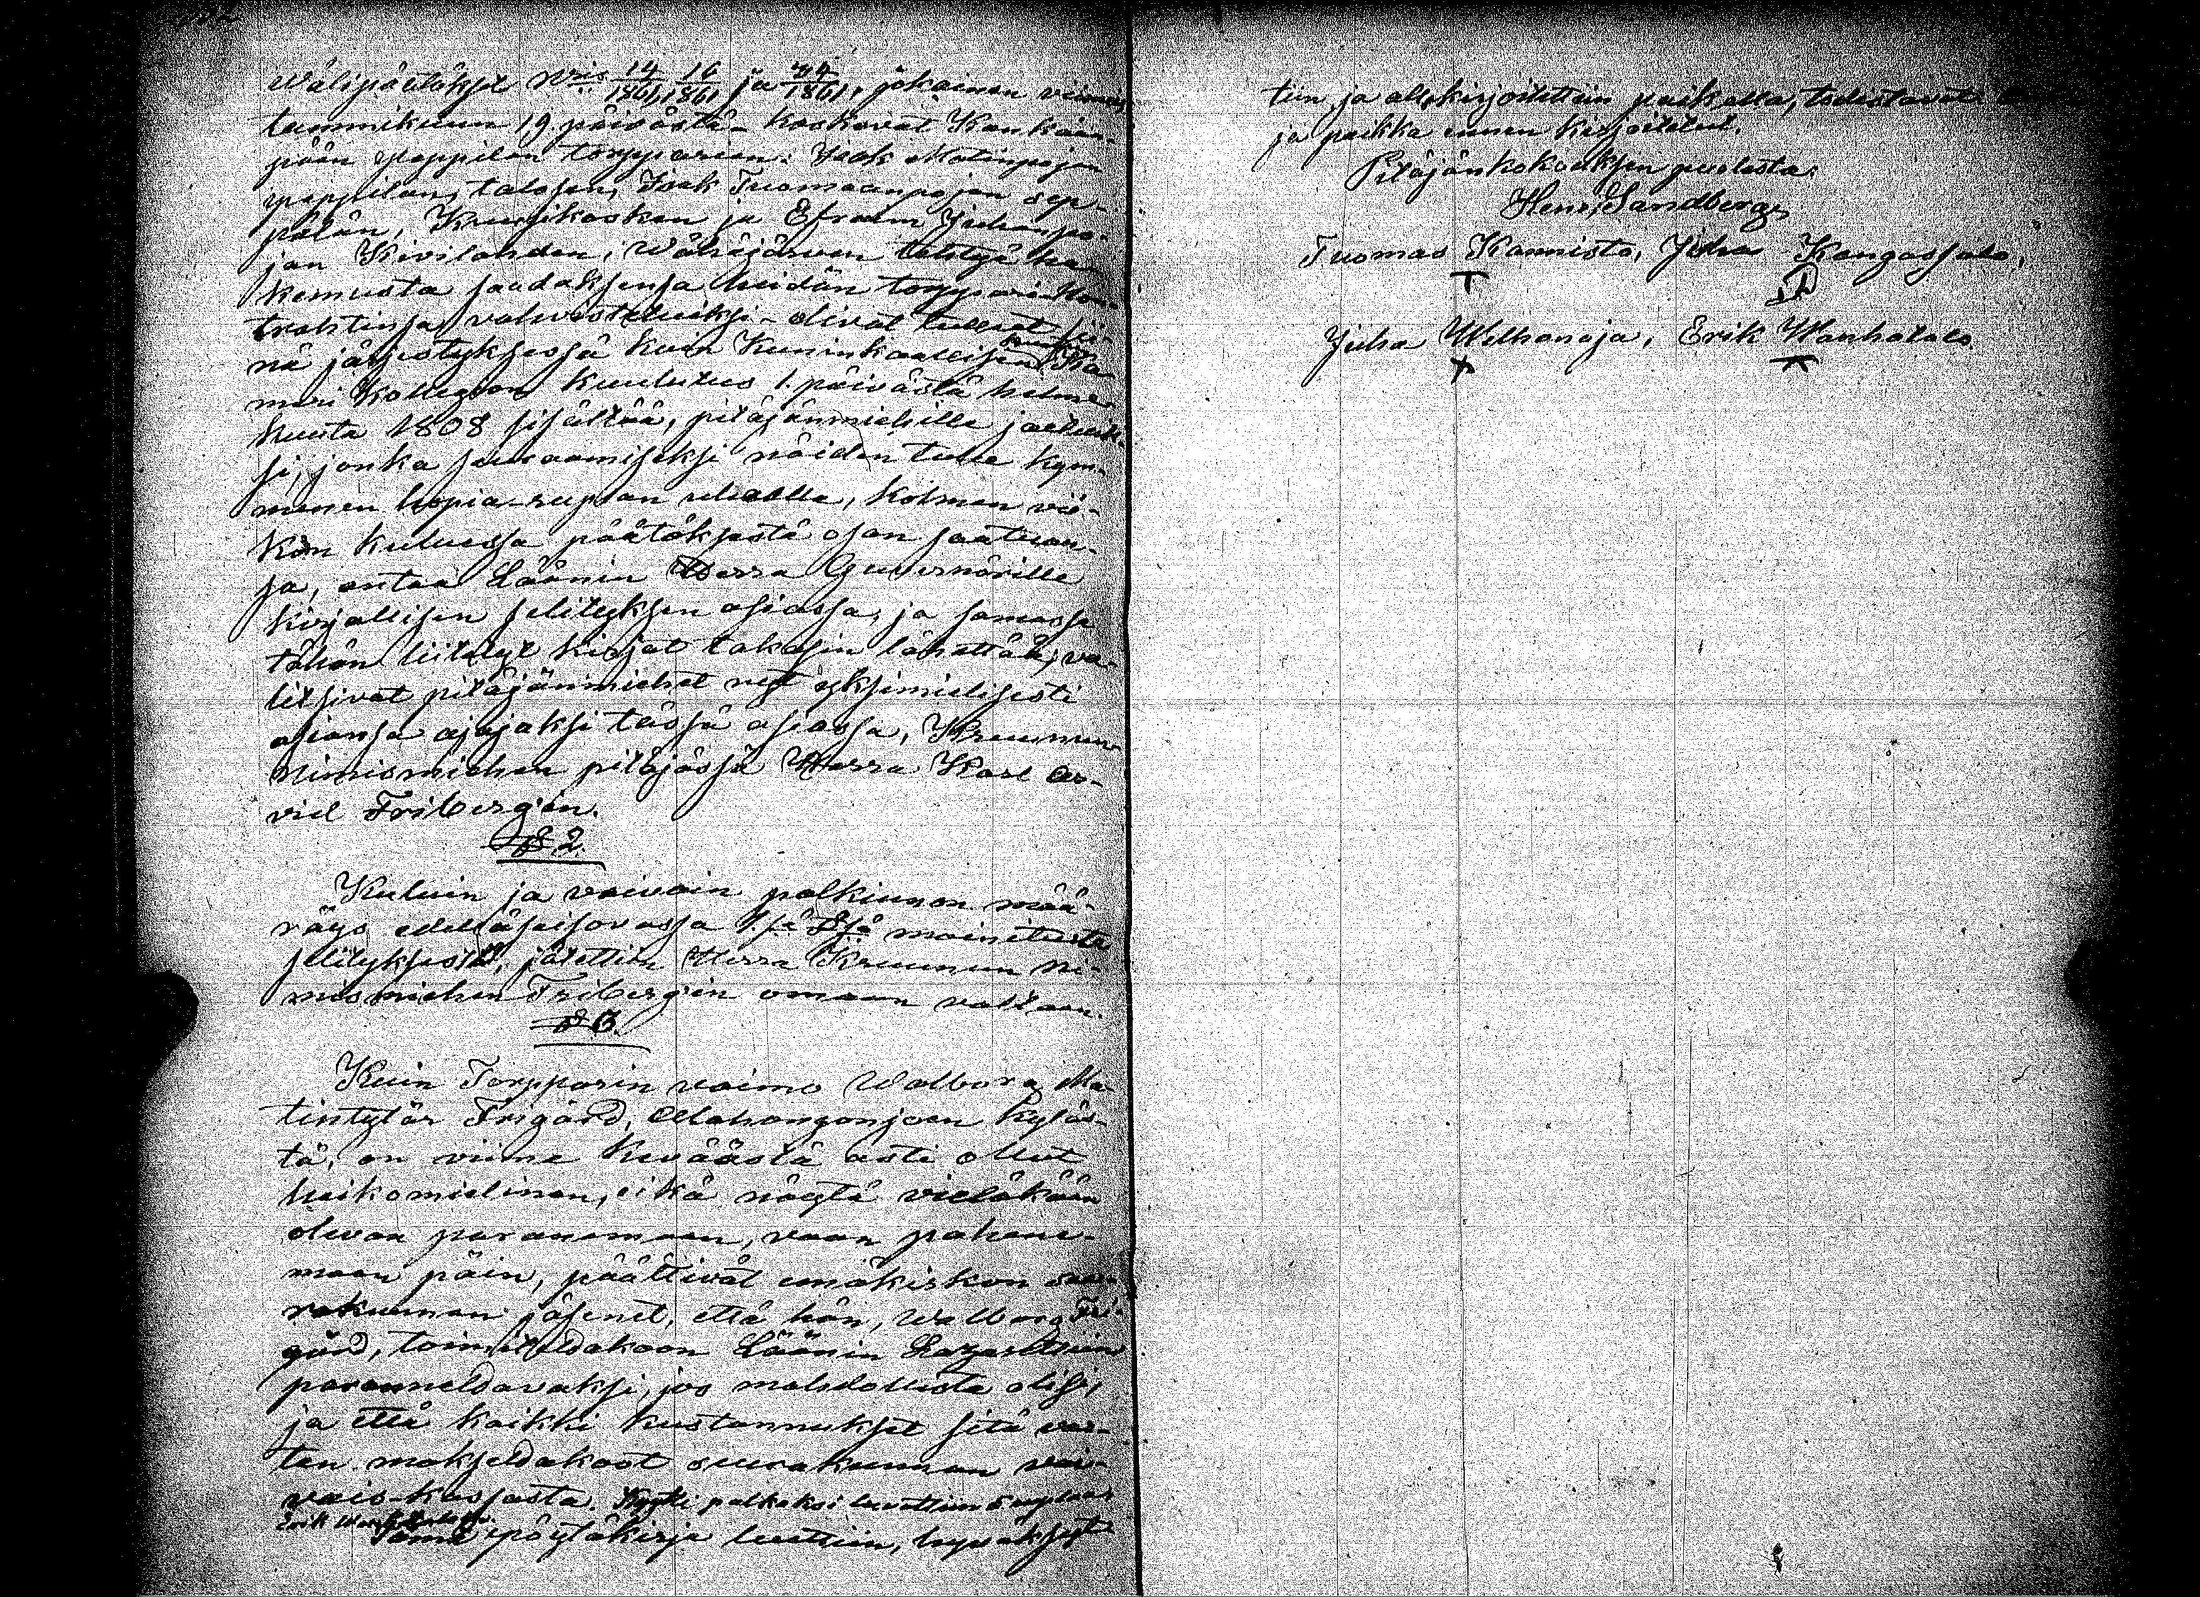 Wälipäätökset Nris 14/1861, 16/1861 ja 44/1861, jokainen viime
tammikuun 19 päivästä - koskevat Kankaan-
pään pappilan torpparien: Isak Matinpojan
pappilan talosen, Isak Tuomaanpojan Sep-
pälän, Kruusikosken ja Efraim Juhanpo-
jan Kivilahden, Wähäjärven tehtyä ha-
kemusta saadaksensa heidän torppari-kon-
trahtinsa vahvistetuiksi - olivat tulleet sii-
nä järjestyksessä kuin Kuninkaallisen Ka-
mari Kollegion Kuulutus 1. päivästä helme-
kuuta 1808 sisältää, pitäjänmiehille jaetuik-
si, jonka seuraamiseksi näiden tulee kym-
menen hopia-ruplan uhalla, kolmen vii-
kon kuluessa päätöksestä osan saatuan-
sa, antaa Läänin Herra Guvernörille
kirjallisen selityksen asiassa, ja samassa
tähän liitetyt kirjat takasin lähettää; va-
litsivat pitäjänmiehet nyt yksimielisesti
asiansa ajajaksi tässä asiassa, Kruunun
nimismiehen pitäjässä Herra Karl Ar-
vid Friberg'in.
§ 2.
Kuluin ja vaivain palkinnon mää-
räys edelläseisovassa 1.sä §sä mainitusta
selityksestä, jätettiin Herra Kruunun Ni-
mismiehen Friberg'in omaan valtaan.
§ 3.
Kuin Torpparin vaimo Walborg Ma-
tintytär Frigård, Alahongonjoen kyläs-
tä, on viime keväästä asti ollut
heikomielinen, eikä näytä vieläkään
olevan paranemaan, vaan pahene-
maan päin, päättivät emäkirkon seu-
rakunnan jäsenet, että hän, Walborg Fri-
gård, toimitetdakoon Läänin Lazarettiin
paranneldavaksi, jos mahdollista olisi,
ja että kaikki kustannukset sitä var-
ten makseldakoot seurakunnan vai-
vais-kassasta. Kyyti palkaksi luvattiin 5 ruplaa
Erik
Tämä pöytäkirja luettiin, hyväksyt-
tiin ja allekirjoitettiin paikalla, todistavat
ja paikka ennen kirjoitetut.
Pitäjänkokouksen puolesta:
Henr. Sandberg,
Tuomas Kannisto, Juha Kangassalo,
Juha Wilhonoja, Erik Wanhatalo